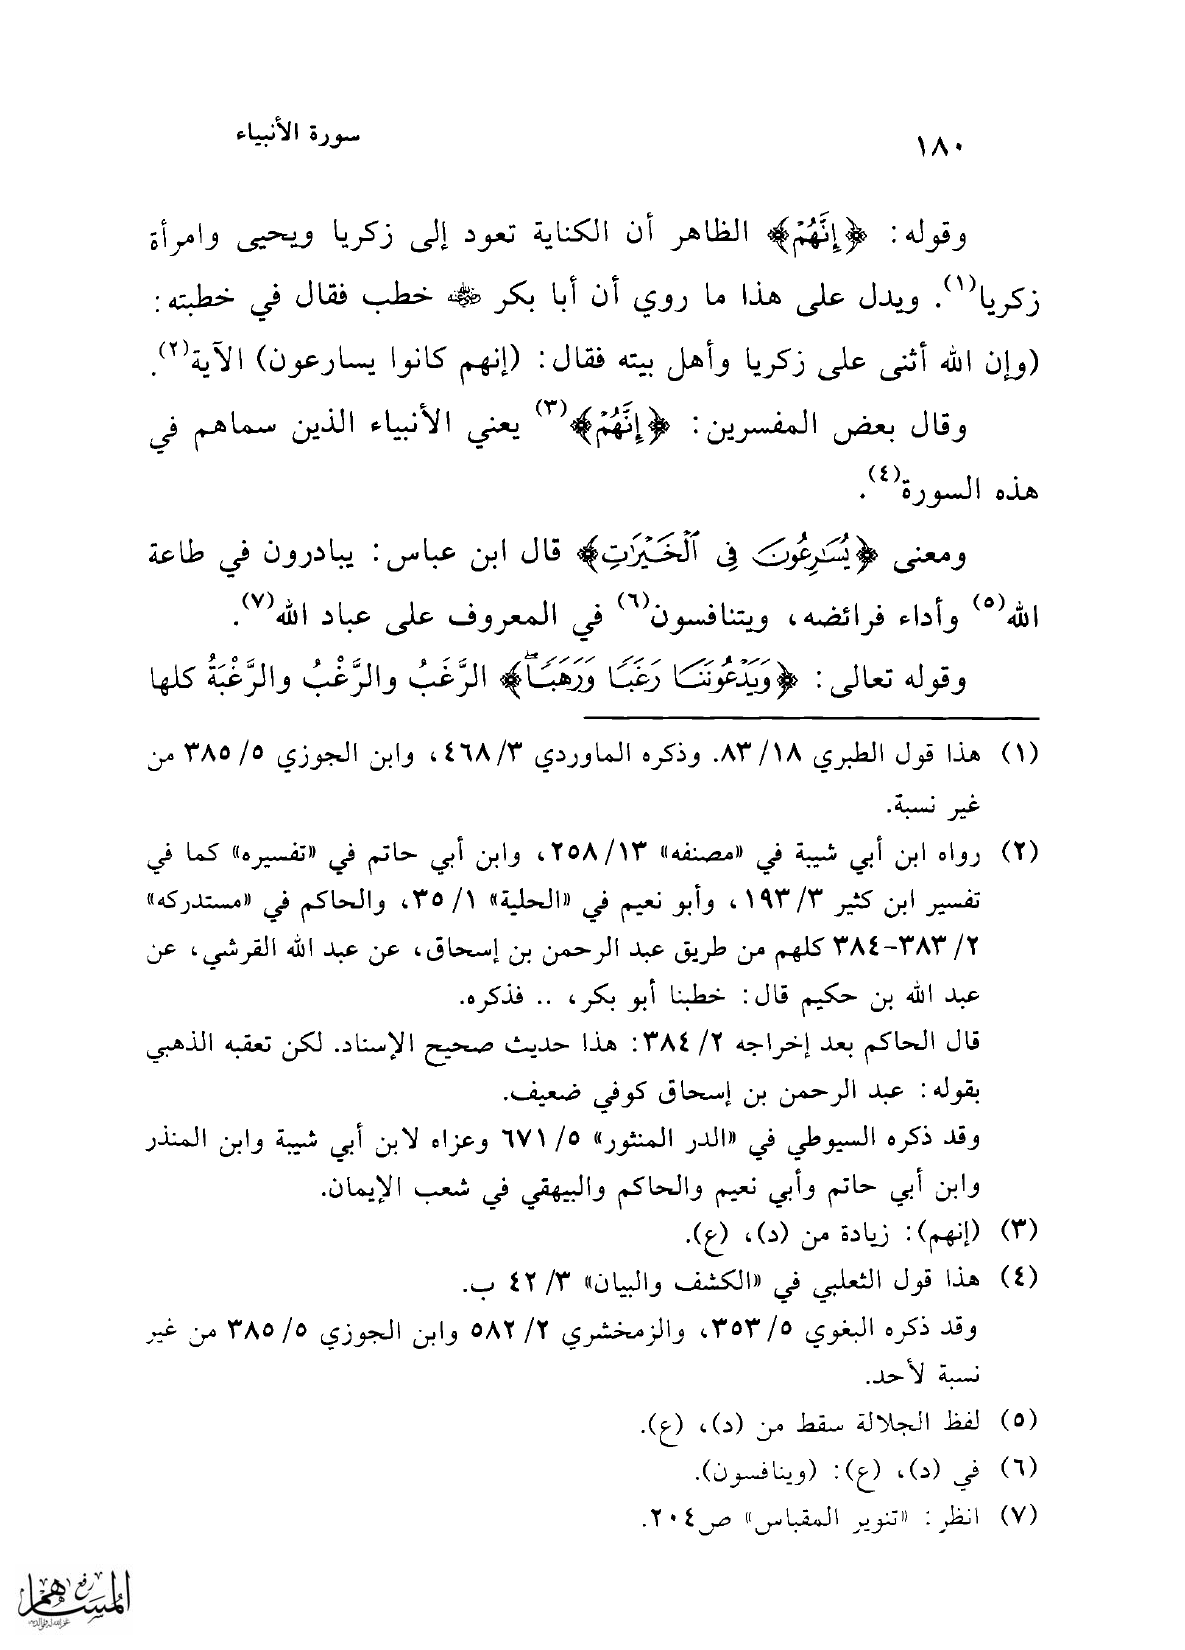 ١٨٠
سورة الأنبياء
وقوله: ﴿إِنَّهُمْ﴾ الظاهر أن الكناية تعود إلى زكريا ويحيى وامرأة
زكريا(١). ويدل على هذا ما روي أن أبا بكر ﵁ خطب فقال في خطبته:
(وإن الله أثنى على زكريا وأهل بيته فقال: (إنهم كانوا يسارعون) الآية(٢).
وقال بعض المفسرين: ﴿إِنَّهُمْ﴾(٣) يعني الأنبياء الذين سماهم في
هذه السورة(٤).
ومعنى ﴿يُسَٰرِعُونَ فِى ٱلْخَيْرَٰتِ﴾ قال ابن عباس: يبادرون في طاعة
الله(٥) وأداء فرائضه، ويتنافسون(٦) في المعروف على عباد الله(٧).
وقوله تعالى: ﴿وَيَدْعُونَنَا رَغَبًا وَرَهَبًاۖ﴾ الرَّغَبُ والرَّغْبُ والرَّغْبَةُ كلها
(١) هذا قول الطبري ١٨/ ٨٣. وذكره الماوردي ٣/ ٤٦٨، وابن الجوزي ٥/ ٣٨٥ من
غير نسبة.
(٢) رواه ابن أبي شيبة في «مصنفه» ١٣/ ٢٥٨، وابن أبي حاتم في «تفسيره» كما في
تفسير ابن كثير ٣/ ١٩٣، وأبو نعيم في «الحلية» ١/ ٣٥، والحاكم في «مستدركه»
٢/ ٣٨٣-٣٨٤ كلهم من طريق عبد الرحمن بن إسحاق، عن عبد الله القرشي، عن
عبد الله بن حكيم قال: خطبنا أبو بكر، .. فذكره.
قال الحاكم بعد إخراجه ٢/ ٣٨٤: هذا حديث صحيح الإسناد. لكن تعقبه الذهبي
بقوله: عبد الرحمن بن إسحاق كوفي ضعيف.
وقد ذكره السيوطي في «الدر المنثور» ٥/ ٦٧١ وعزاه لابن أبي شيبة وابن المنذر
وابن أبي حاتم وأبي نعيم والحاكم والبيهقي في شعب الإيمان.
(٣) (إنهم): زيادة من (د)، (ع).
(٤) هذا قول الثعلبي في «الكشف والبيان» ٣/ ٤٢ ب.
وقد ذكره البغوي ٥/ ٣٥٣، والزمخشري ٢/ ٥٨٢ وابن الجوزي ٥/ ٣٨٥ من غير
نسبة لأحد.
(٥) لفظ الجلالة سقط من (د)، (ع).
(٦) في (د)، (ع): (وينافسون).
(٧) انظر: «تنوير المقباس» ص٢٠٤.